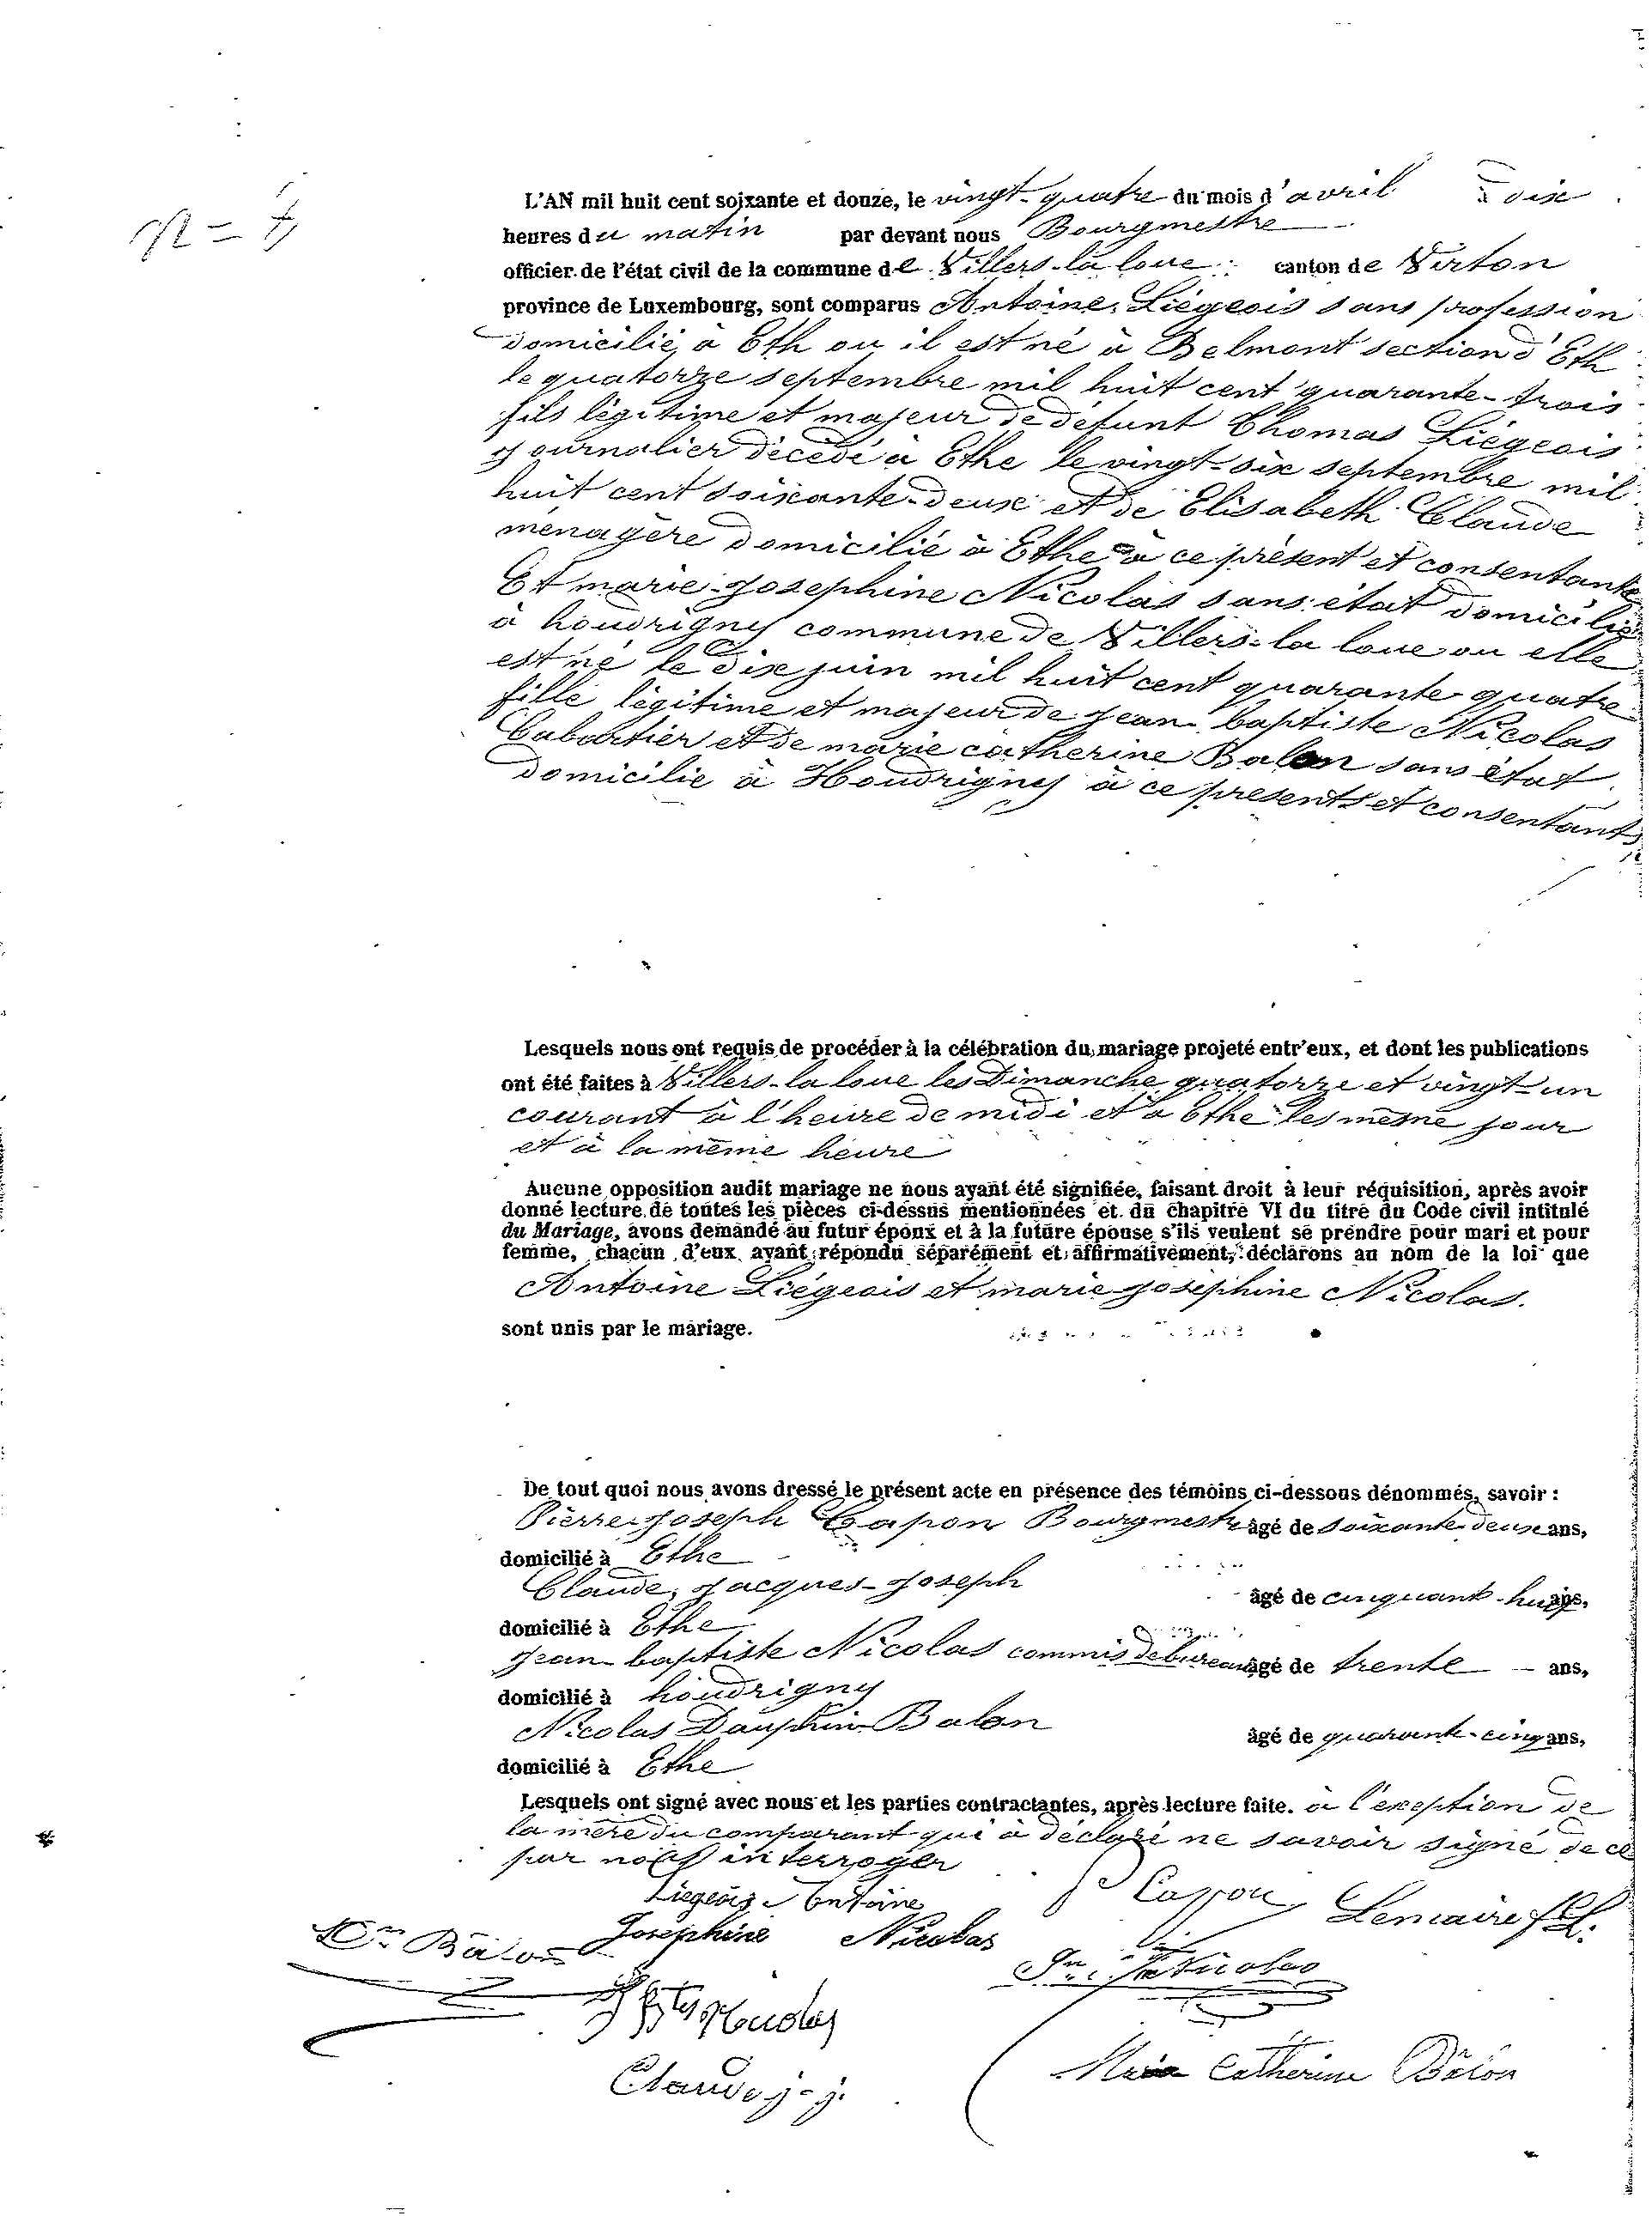 L'AN mil huit cent soixante et douze, le vingt-quatre du mois d'avril à dix
heures du matin par devant nous Bourgmestre
officier de l'état civil de la commune de Villers-la loue canton de Virton
province de Luxembourg, sont comparus Antoine Liégeois sans profession
domicilié à Eth ou il est né à Belmont section d'Eth
le quatorze septembre mil huit cent quarante-trois
fils légitime et majeur de défunt Thomas Liégeois
journalier décédé à Ethe le vingt-six septembre mil
huit cent soixante-deux et de Elisabeth Claude
ménagère domicilié à Ethe à ce présent et consentante
Et marie-Josephine Nicolas sans état domicilié
à houdrigny commune de Villers-la loue ou elle
est né le dix juin mil huit cent quarante quatre
fille légitime et majeur de jean baptiste Nicolas
Cabartier et de marie catherine Balon sans état
domicilie à Houdrigny à ce présents et consentants
Lesquels nous ont requis de procéder à la célébration du mariage projeté entr'eux, et dont les publications
ont été faites à Villers-la loue les Dimanche quatorze et vingt-un
courant à l'heure de midi et à Ethe les même jour
et à la même heure
Aucune opposition audit mariage ne nous ayant été signifiée, faisant droit à leur réquisition, après avoir
donné lecture de toutes les pièces ci-dessus mentionnées et du chapitre VI du titre du Code civil intitulé
du Mariage, avons demandé au futur époux et à la future épouse s'ils veulent se prendre pour mari et pour
femme, chacun d'eux ayant répondu séparément et affirmativement, déclarons au nom de la loi que
Antoine Liégeois et marie-Joséphine Nicolas.
sont unis par le mariage.
De tout quoi nous avons dressé le présent acte en présence des témoins ci-dessous dénommés, savoir :
Pierre-Joseph Capon Bourgmestre âgé de soixante-deux ans,
domicilié à Ethe
Claude, Jacques-Joseph âgé de cinquante-huit ans,
domicilié à Ethe
Jean-baptiste Nicolas commis de bureau âgé de trente ans,
domicilié à houdrigny
Nicolas Dauphin Balon âgé de quarante-cinq ans,
domicilié à Ethe
Lesquels ont signé avec nous et les parties contractantes, après lecture faite. à l'exeption de
la mère du comparant qui à déclaré ne savoir signé de ce
par nous interroger
Liegeois Antoine P Capon Lemaire
Balon Joséphine Nicolas
Jn Bte Nicolas
Nicolas
Claude j-j. Marie Catherine Bâlon